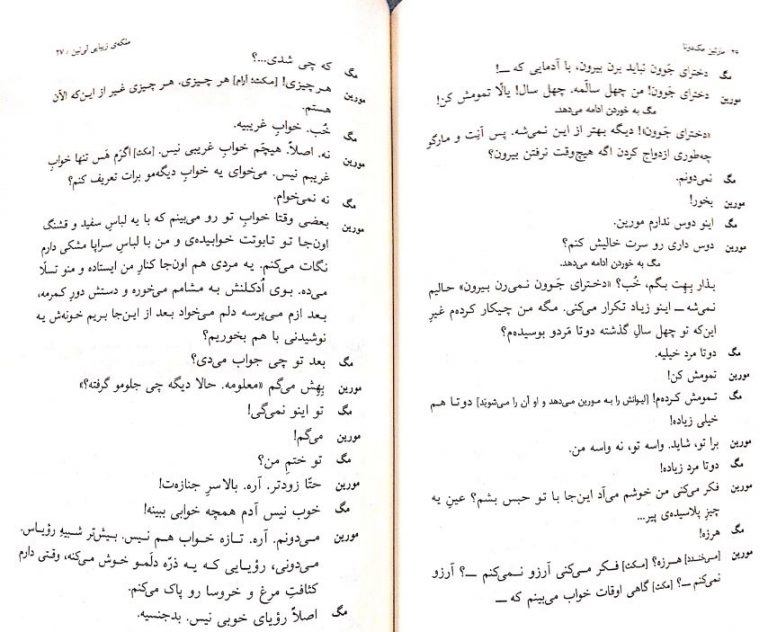 ۲۶ / مارتین مک‌دونا
مگ دخترای جَوون نباید برن بیرون، با آدمایی که ــ!
مورین دخترای جَوون! من چهل سالَمه. چهل سال! یالّا تمومش کن!
مگ به خوردن ادامه می‌دهد.
«دخترای جَوون»! دیگه بهتر از این نمی‌شه. پس آنِت و مارگو
چه‌طوری ازدواج کردن اگه هیچ‌وقت نرفتن بیرون؟
مگ نمی‌دونم.
مورین بخور!
مگ اینو دوس ندارم مورین.
مورین دوس داری رو سرت خالیش کنم؟
مگ به خوردن ادامه می‌دهد.
بذار بِهِت بگم، خُب؟ «دخترای جَوون نمی‌رن بیرون» حالیم
نمی‌شه ــ اینو زیاد تکرار می‌کنی. مگه من چیکار کرده‌م غیرِ
این‌که تو چهل سالِ گذشته دوتا مَردو بوسیده‌م؟
مگ دوتا مرد خیلیه.
مورین تمومش کن!
مگ تمومش کرده‌م! [لیوانش را به مورین می‌دهد و او آن را می‌شویَد] دوتا هم
خیلی زیاده!
مورین برا تو، شاید. واسه تو، نه واسه من.
مگ دوتا مرد زیاده!
مورین فکر می‌کنی من خوشم می‌آد این‌جا با تو حبس بشم؟ عینِ یه
چیزِ پلاسیده‌ی پیر...
مگ هرزه!
مورین [می‌خندد] هرزه؟ [مکث] فکر می‌کنی آرزو نمی‌کنم ــ؟ آرزو
نمی‌کنم ــ؟ [مکث] گاهی اوقات خواب می‌بینم که ــ
ملکه‌ی زیبایی لی‌نین / ۲۷
مگ که چی شدی...؟
مورین هرچیزی! [مکث؛ آرام] هر چیزی. هر چیزی غیر از این‌که الآن
هستم.
مگ خُب. خوابِ غریبیه.
مورین نه. اصلاً. هیچَم خوابِ غریبی نیس. [مکث] اگرَم هَس تنها خوابِ
غریبم نیس. می‌خوای یه خوابِ دیگه‌مو برات تعریف کنم؟
مگ نه نمی‌خوام.
مورین بعضی وقتا خوابِ تو رو می‌بینم که با یه لباسِ سفید و قشنگ
اون‌جا تو تابوتت خوابیده‌ی و من با لباسِ سراپا مشکی دارم
نگات می‌کنم. یه مردی هم اون‌جا کنارِ من ایستاده و منو تسلّا
می‌ده. بوی اُدکلنش به مشامم می‌خوره و دستش دورِ کمرمه،
بعد ازم می‌پرسه دلم می‌خواد بعد از این‌جا بریم خونه‌ش یه
نوشیدنی با هم بخوریم؟
مگ بعد تو چی جواب می‌دی؟
مورین بِهِش می‌گم «معلومه. حالا دیگه چی جلومو گرفته؟»
مگ تو اینو نمی‌گی!
مورین می‌گم!
مگ تو ختمِ من؟
مورین حتّا زودتر. آره. بالاسرِ جنازه‌ت!
مگ خوب نیس آدم همچه خوابی ببینه!
مورین می‌دونم. آره. تازه خواب هم نیس. بیش‌تر شبیهِ رؤیاس.
می‌دونی، رؤیایی که یه ذرّه دلَمو خوش می‌کنه، وقتی دارم
کثافتِ مرغ و خروسا رو پاک می‌کنم.
مگ اصلاً رؤیای خوبی نیس. بدجنسیه.